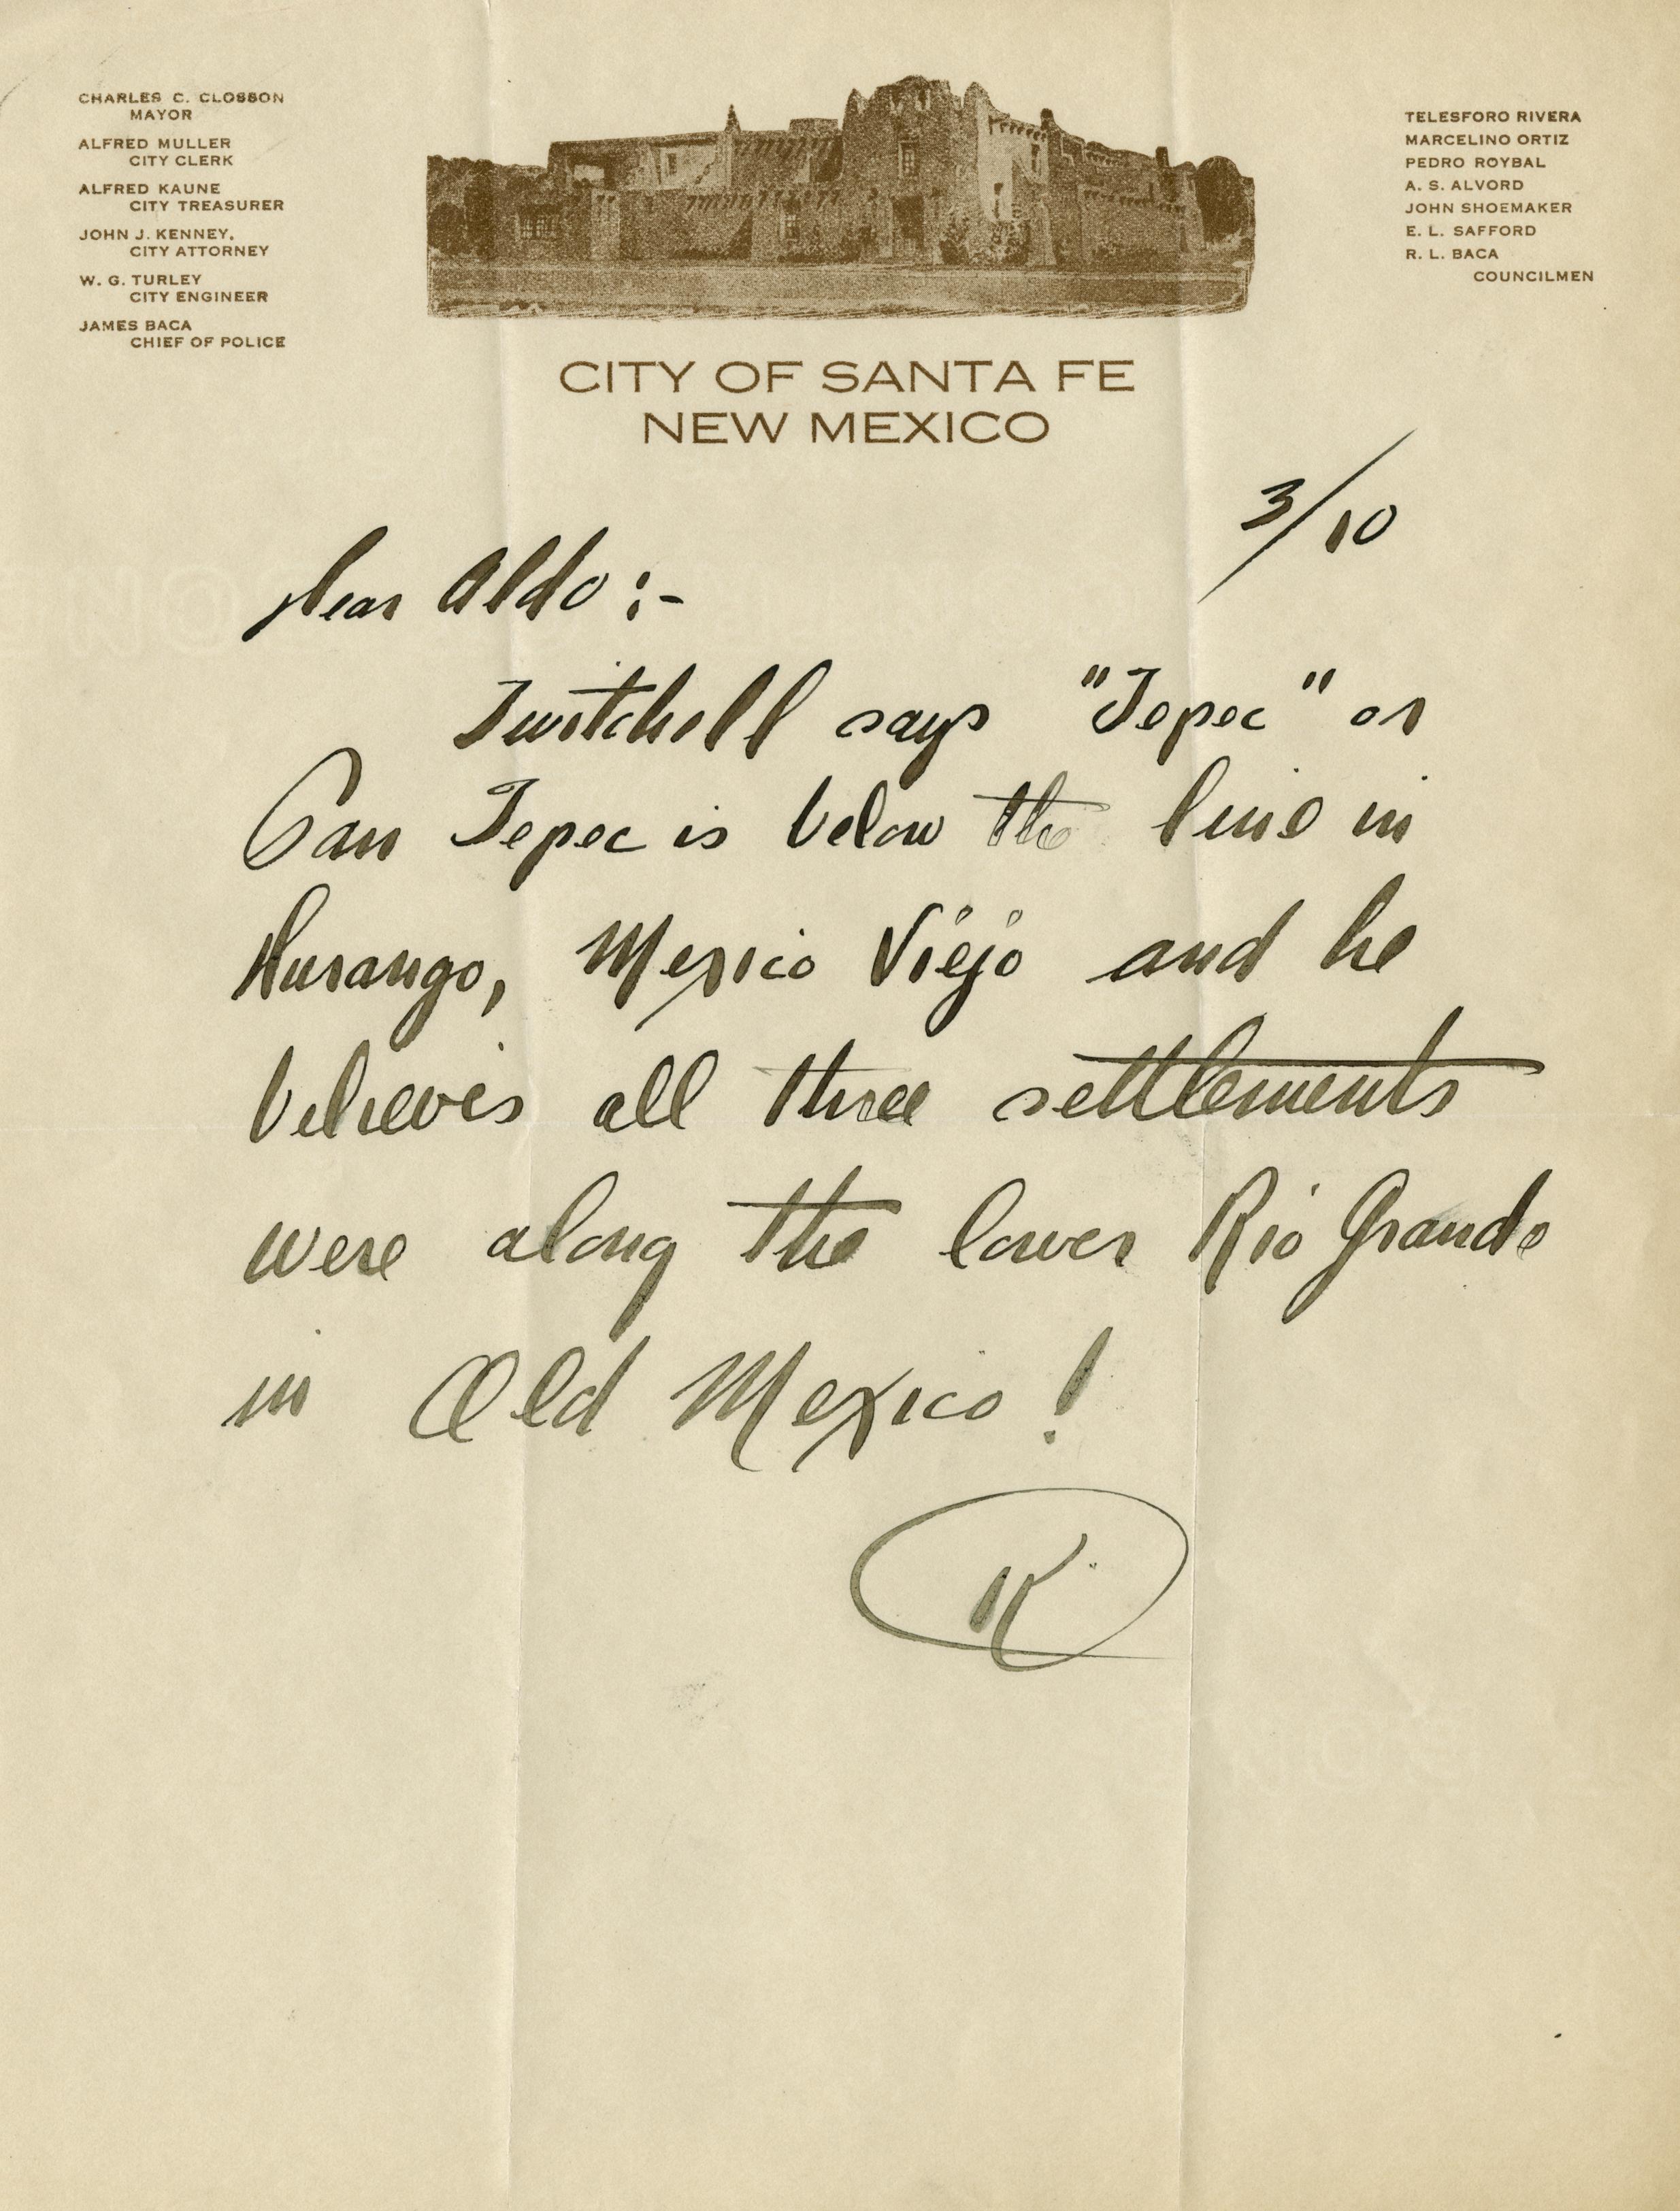 CHARLES C. CLOSSON
MAYOR
ALFRED MULLER
CITY CLERK
ALFRED KAUNE
CITY TREASURER
JOHN J. KENNEY,
CITY ATTORNEY
W. G. TURLEY
CITY ENGINEER
JAMES BACA
CHIEF OF POLICE
TELESFORO RIVERA
MARCELINO ORTIZ
PEDRO ROYBAL
A. S. ALVORD
JOHN SHOEMAKER
E. L. SAFFORD
R. L. BACA
COUNCILMEN
CITY OF SANTA FE
NEW MEXICO
3/10
Dear Aldo :-
Twitchell says "Jepec" or
San Jepec is below the line in
Durango, Mexico Viejo and he
believes all three settlements
were along the lower Rio Grande
in Old Mexico !
K